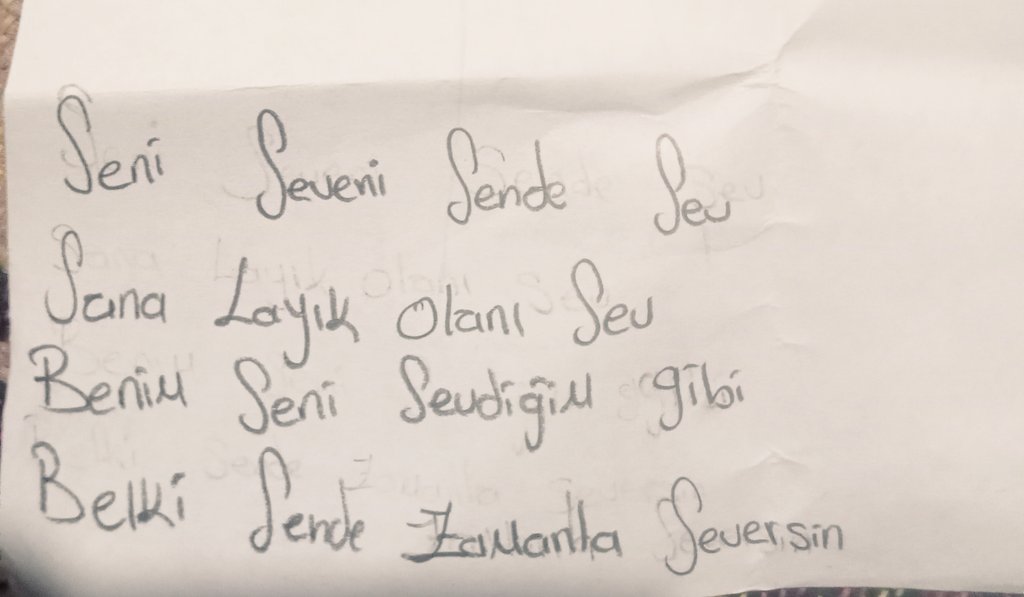 Seni Seveni Sende Sev
Sana Layık Olanı Sev
Benim Seni Sevdiğim gibi
Belki Sende Zamanla Seversin